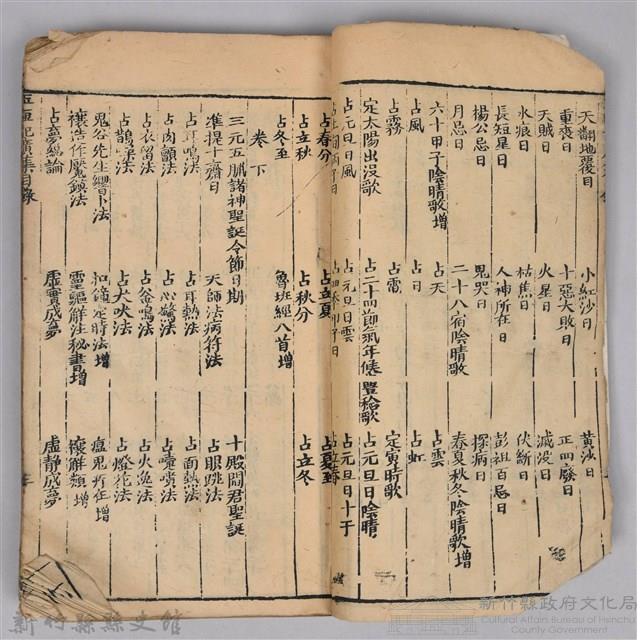 天翻地覆日 小紅沙日 黃沙日
重喪日 十惡大敗日 正四廢日
天賊日 火星日 滅沒日
水痕日 枯焦日 伏斷日
長短星日 人神所在日 彭祖百忌日
楊公忌日 鬼哭日 探病日
月忌日 二十八宿陰晴歌 春夏秋冬陰晴歌增
六十甲子陰晴歌增 占天 占雲
占風 占虹
占霧 定寅時歌
定太陽出沒歌 占二十四節氣年候豐稔歌
占元旦日風 占元旦日雲 占元旦日陰晴
占元旦日十干
占春分 占立夏 占夏至
占立秋 占秋分 占立冬
占冬至 魯班經八首增
卷下
三元五臘諸神聖誕令節日期 十殿閻君聖誕
準提十齋日 天師法病符法 占眼跳法
占耳鳴法 占耳熱法 占面熱法
占肉顫法 占心驚法 占嚏噴法
占衣留法 占釜鳴法 占火逸法
占鵲噪法 占犬吠法 占燈花法
鬼谷先生響卜法 扣鐘定時法增 瘟鬼所在增
禳浩作魘鎮法 靈驅解法秘書增 禳解類增
占夢總論 虛實成夢 虛靜成夢
新竹縣縣史館
新竹縣政府文化局
Cultural Affairs Bureau of Hsinchu
County Government